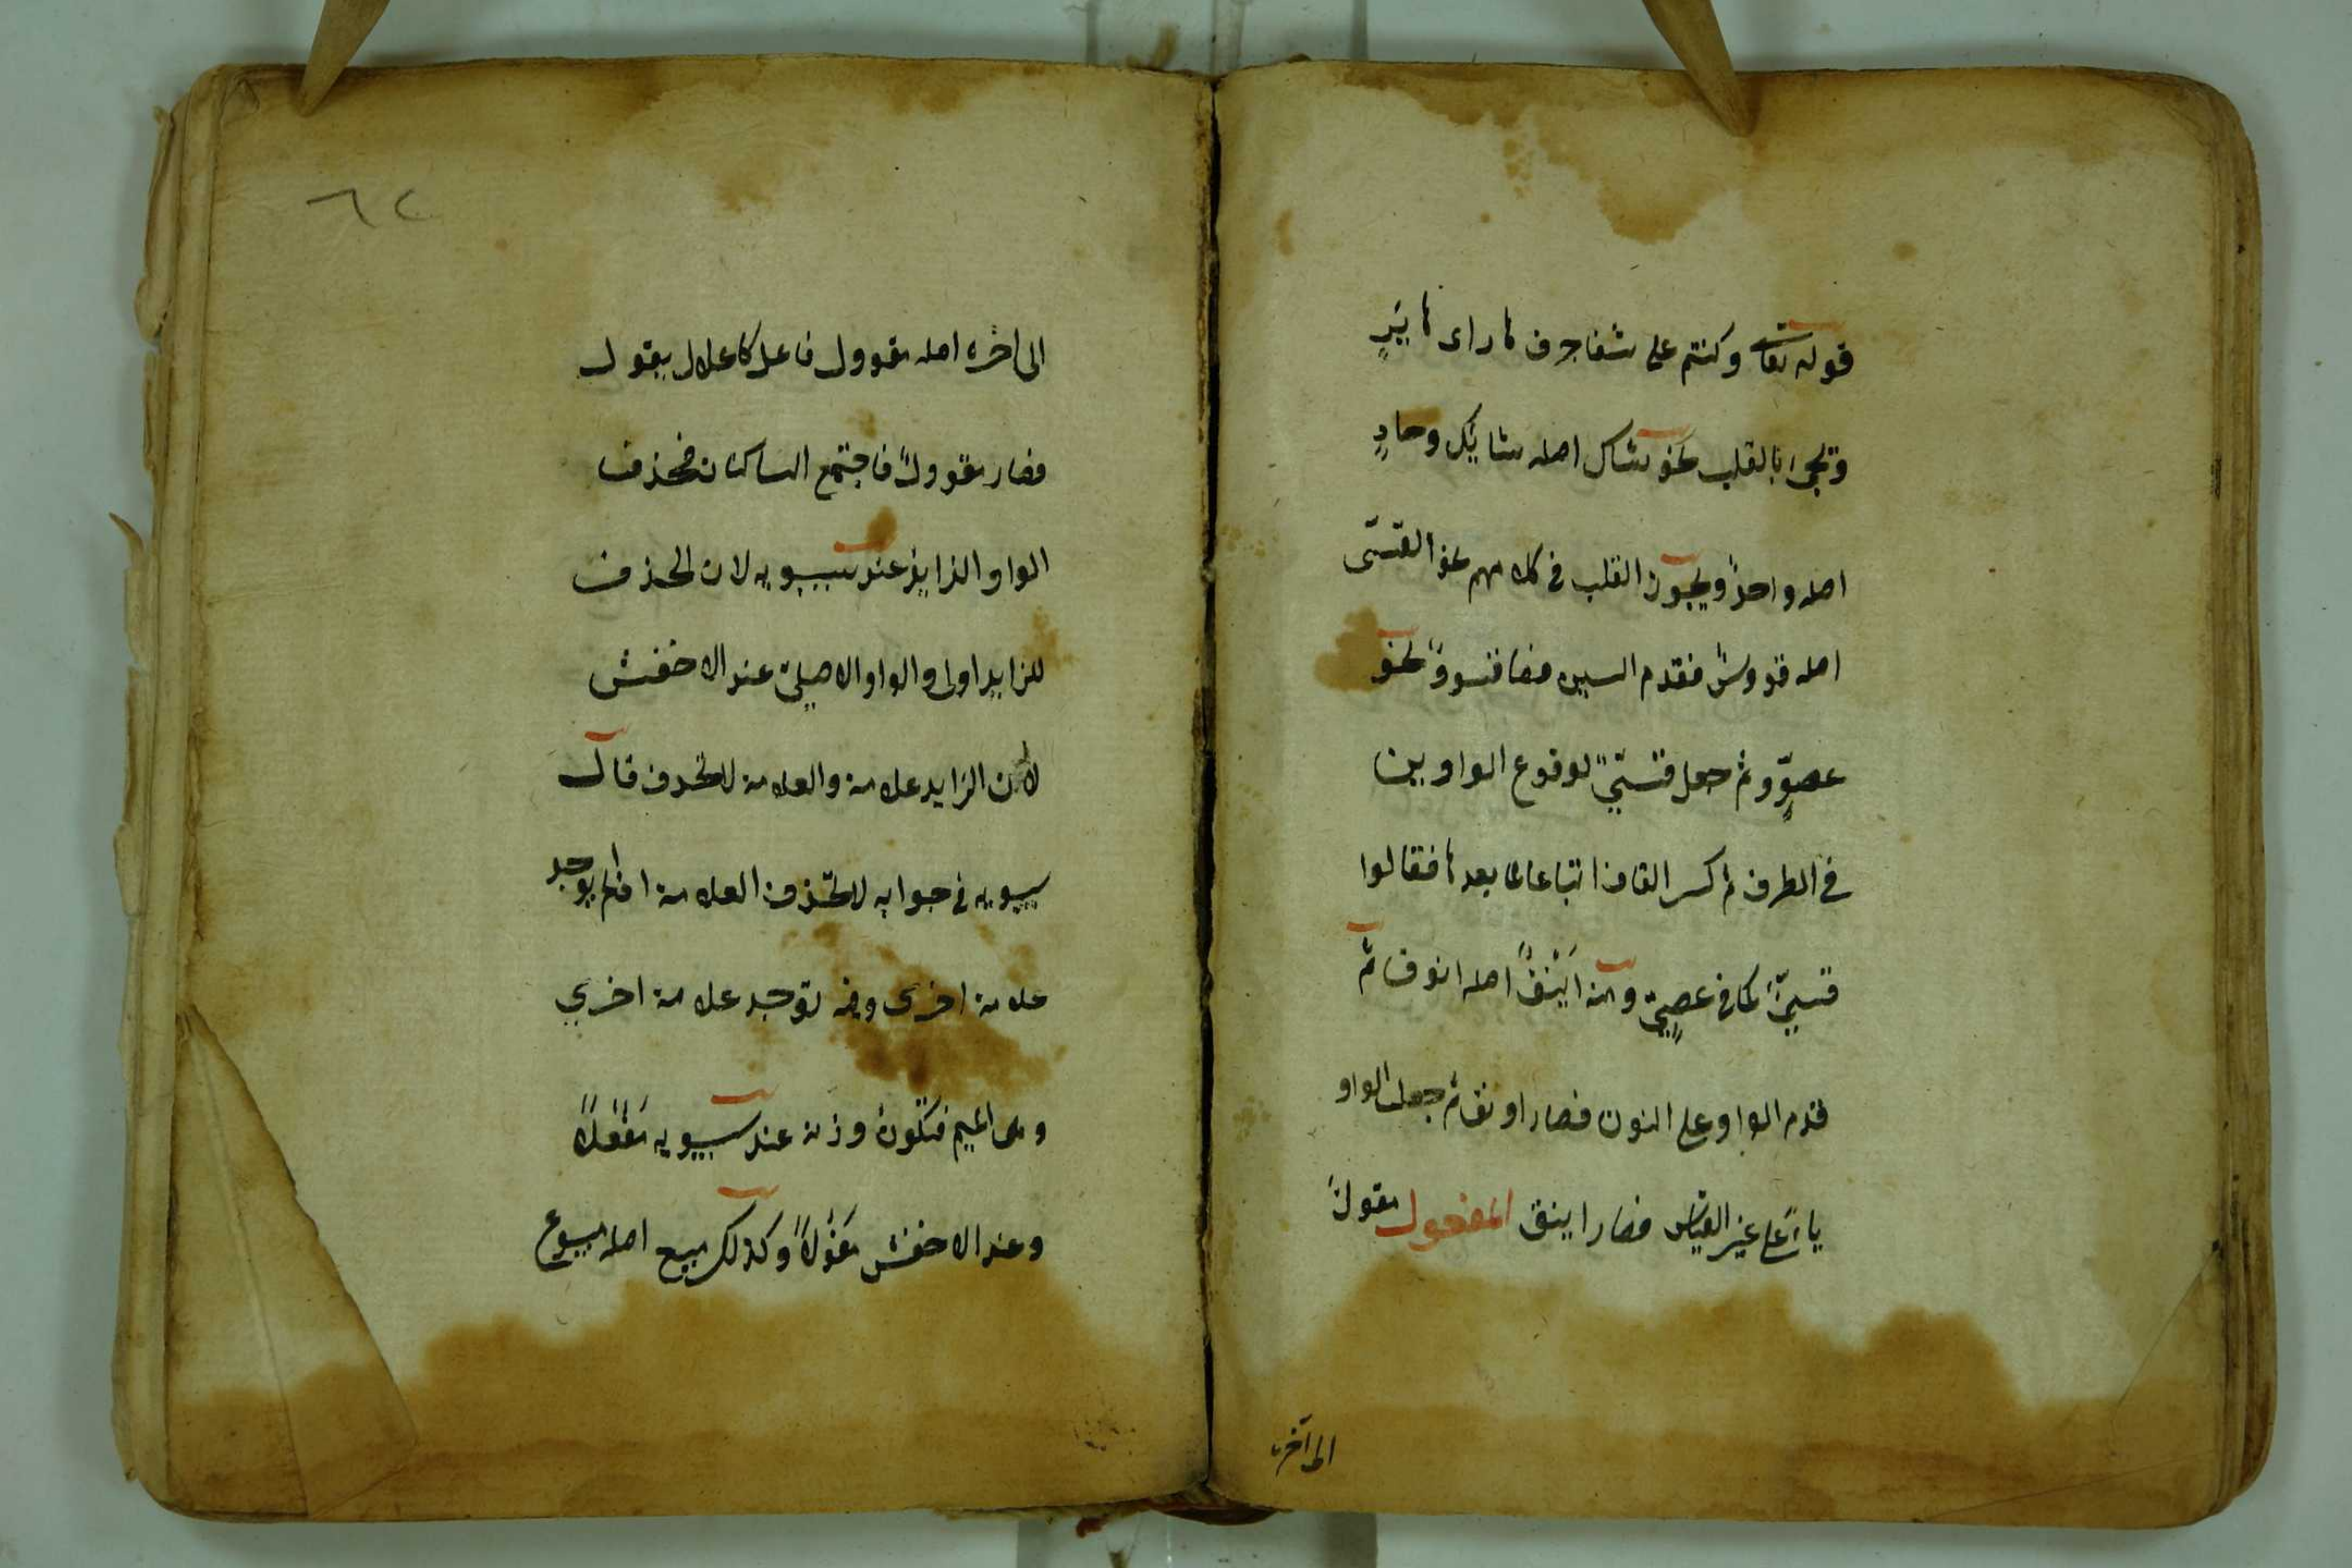 قوله تعالى وكنتم على شفا جرف ها راى هاير
ويجئ بالقلب نحو شاك اصله شايك وحادٍ
اصله واحد ويجوز القلب فى كلامهم نحو القسى
اصله قووس فقدم السين فصا قسوو نحو
عصوو ثم جعل قسيّ لوقوع الواوين
فى الطرف ثم كسر القاف اتباعا لما بعدها فقالوا
قسيّ كما فى عصيّ ومنه اينق اصله انوق ثم
قدم الواو على النون فصار اونق ثم جعل الواو
ياء على غير القياس فصار اينق المفعول مقول
الى آخره
٦٢
الى اخره اصله مقوول فاعل كاعلال يقول
فصار مقوول فاجتمع الساكنان فحذفت
الواو الزايد عند سيبويه لان الحذف
للزايد اولى والواو الاصلى عند الاخفش
لان الزايد علامة والعلامة لا تحذف قال
سيبويه فى جوابه لا تحذف العلامة اذا لم يوجد
علامة اخرى وفيه توجد علامة اخري
وهى الميم فتكون وزنه عند سيبويه مفعلا
وعند الاخفش مفولا وكذلك مبيع اصله مبيوع